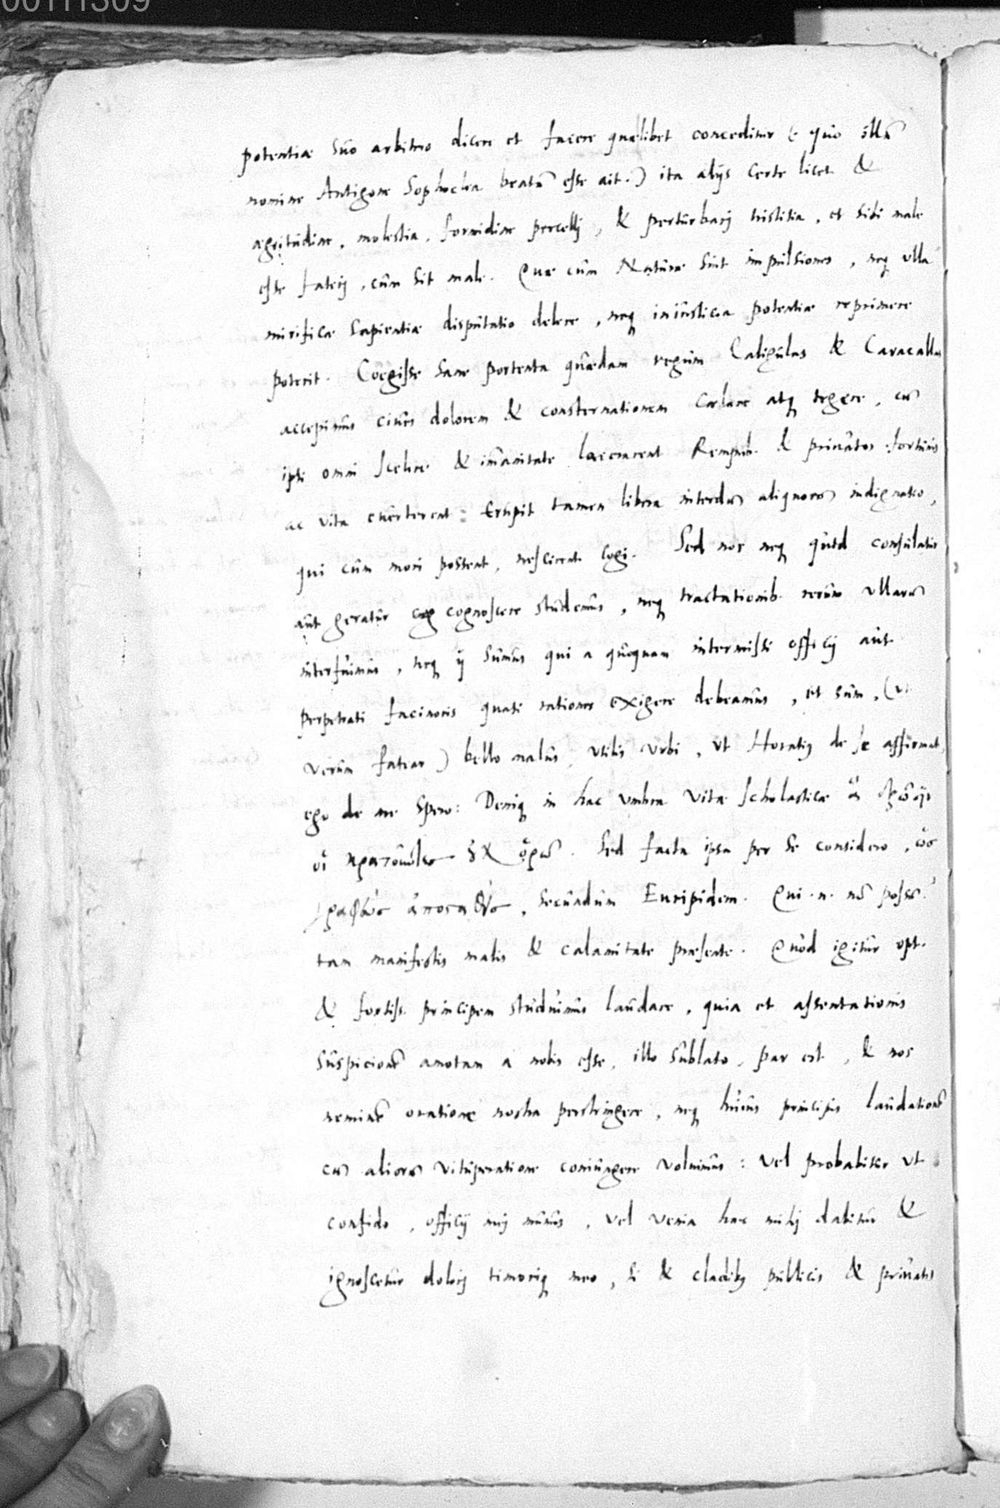 00111309
potentiæ suo arbitrio dicere et facere quælibet conceditur (quo illũ
nomine Antigone Sophoclea beatũ esse ait.) ita alijs certe licet &
ægritudine, molestia, formidine percelli, & perturbari tristitia, et sibi male
esse fateri, cùm sit male. Quæ cùm Naturæ sint impulsiones, neq ulla
mirificæ sapientiæ disputatio delere, neq iniustitia potentiæ reprimere
poterit. Coëgisse sane portenta quædam regum Caligulas & Caracallas
accepimus cives dolorem & consternationem cælare atq tegere, cũ
ipsi omni scelere & im̃anitate lacerarent Rempub. & privatos fortunis
ac vita everterent: Erupit tamen libera interdũ aliquorũ indignatio,
qui cùm mori possent, nescirent cogi. Sed nos neq quid consulatis
aut geratur cog cognoscere studemus, neq tractationib. rerum ullarũ
interfuimus, neq ij sumus qui a quoquam intermissi officij aut
perpetrati facinoris quasi rationes exigere debeamus, et sum, (ut
verum fatear) bello malus, utilis urbi, ut Horatiꝰ de se affirmat,
ego de me spero: Deniq in hac umbra vitæ scholasticæ
οἱ κρατοῦντες ὀχ ὁρῶ. Sed facta ipsa per se considero, ὡς
γραφεὺς ἀποσταθεὶς, secundum Euripidem. Qui .n. nõ possẽ?
tam manifestis malis & calamitate præsente. Quod igitur opt.
& fortiss. principem studuimus laudare, quia et assentationis
suspicionẽ amotam a nobis esse, illo sublato, par est, & nos
neminẽ oratione nostra perstringere, neq huius principis laudationẽ
cũ aliorũ vituperatione coniungere voluimus: vel probabitur ut
confido, officij mei munus, vel venia hæc mihi dabitur &
ignoscetur dolori timoriq meo, si & cladibꝰ publicis & privatis